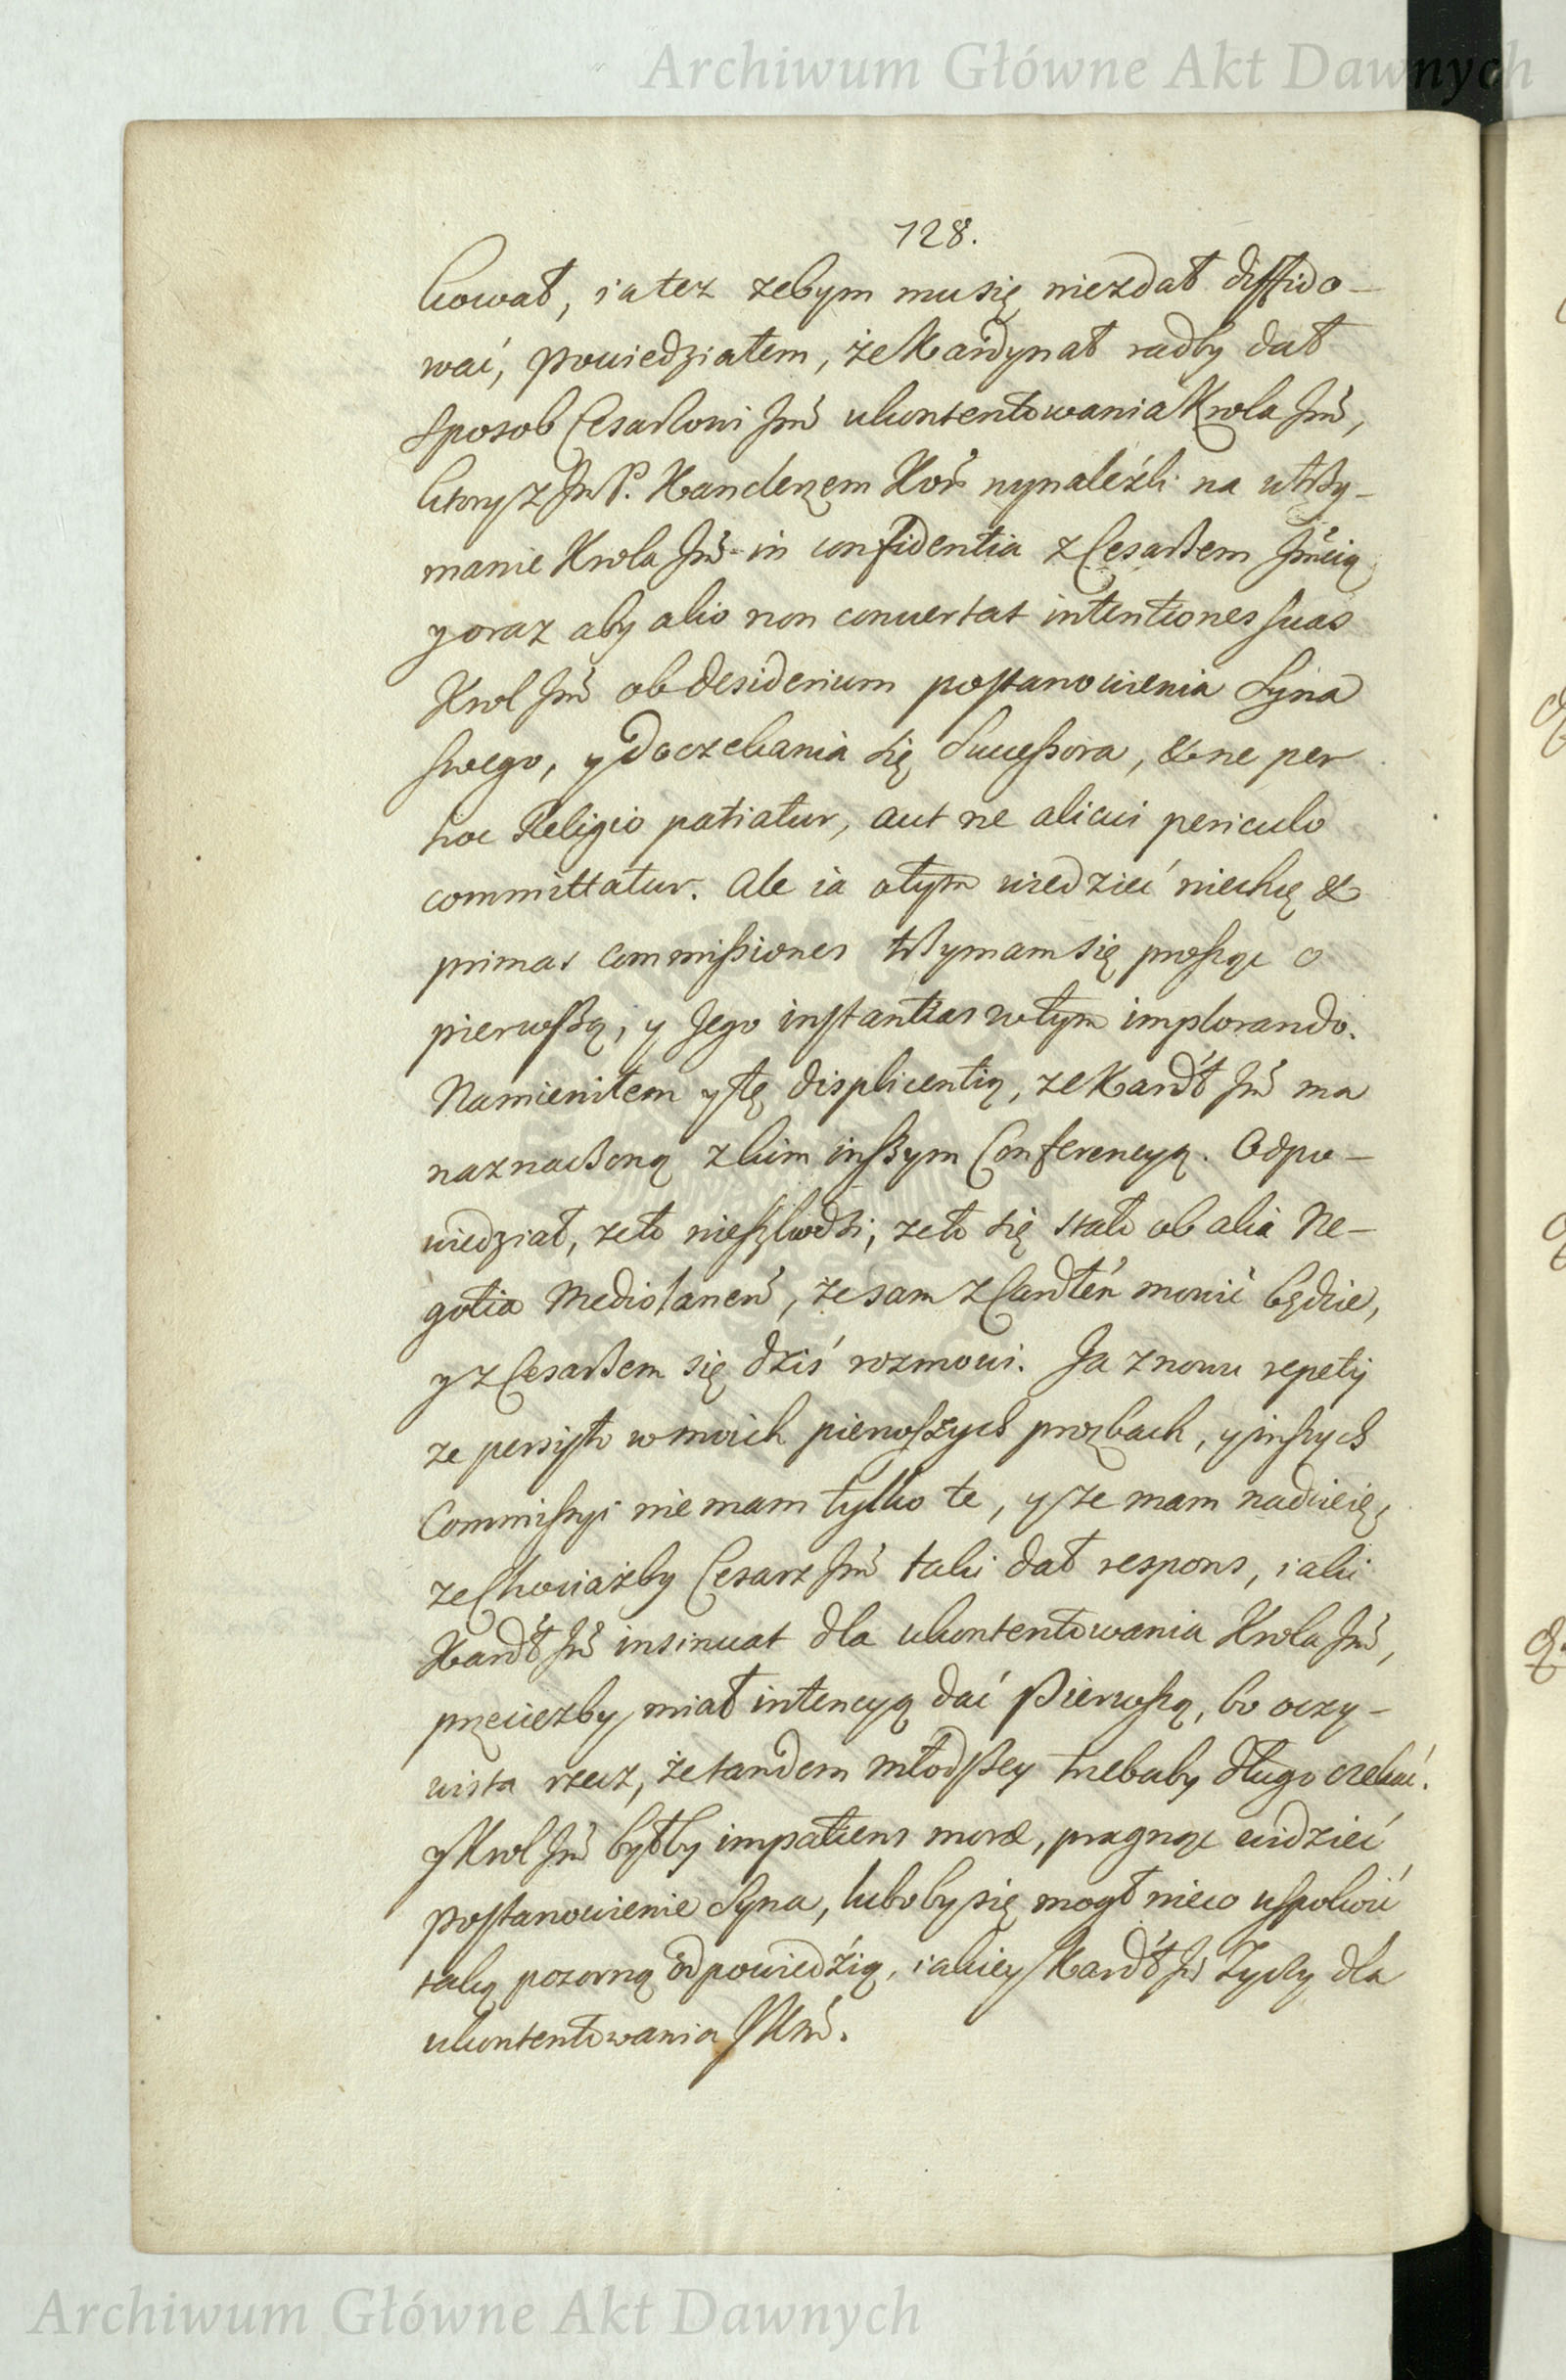 Archiwum Główne Akt Dawnych
128.
kował, ia też żebym mu się niezdał diffido-
wać, powiedziałem, że Kardynał radby dał
sposob Cesarzowi Jmć ukontentowania Krola Jmć,
ktory z Jm P. Kanclerzem Kor. wynaleźli na utrzy-
manie Krola Jmć in confidentia z Cesarzem Jmcią
y oraz aby alio non convertat intentiones suas
Krol Jmć ob desiderium postanowienia Syna
swego, y doczekania się Successora, & ne per
hoc Religio patiatur, aut ne alicui periculo
committatur. Ale ia o tym wiedzieć niechcę &
primas commissiones trzymam się prosząc o
pierwszą, y Jego instantias w tym implorando.
Namieniłem y tę displicentią, że Kardł Jmć ma
naznaczoną z kim inszym Conferencyą. Odpo-
wiedział, że to nieszkodzi, że to się stało ob alia Ne-
gotia Mediolanen, że sam z Cardłem mowić będzie,
y z Cesarzem się dziś rozmowi. Ja znowu repetij
że persisto w moich pierwszych prozbach, y inszych
Commissyi nie mam tylko te, y że mam nadzieię,
że Chociażby Cesarz Jmć taki dał respons, iaki
Kardł Jmć insinuat dla ukontentowania Krola Jmć,
przecieżby miał intencyą dać Pierwszą, bo oczy-
wista rzecz, że tandem młodszey trzebaby długo czekać.
y Krol Jmć byłby impatiens moræ, pragnąc widzieć
postanowienie Syna, luboby się mogł nieco uspokoić
taką pozorną odpowiedźią, iakiey Kardł Jmć życzy dla
ukontentowania JKM.
Archiwum Główne Akt Dawnych